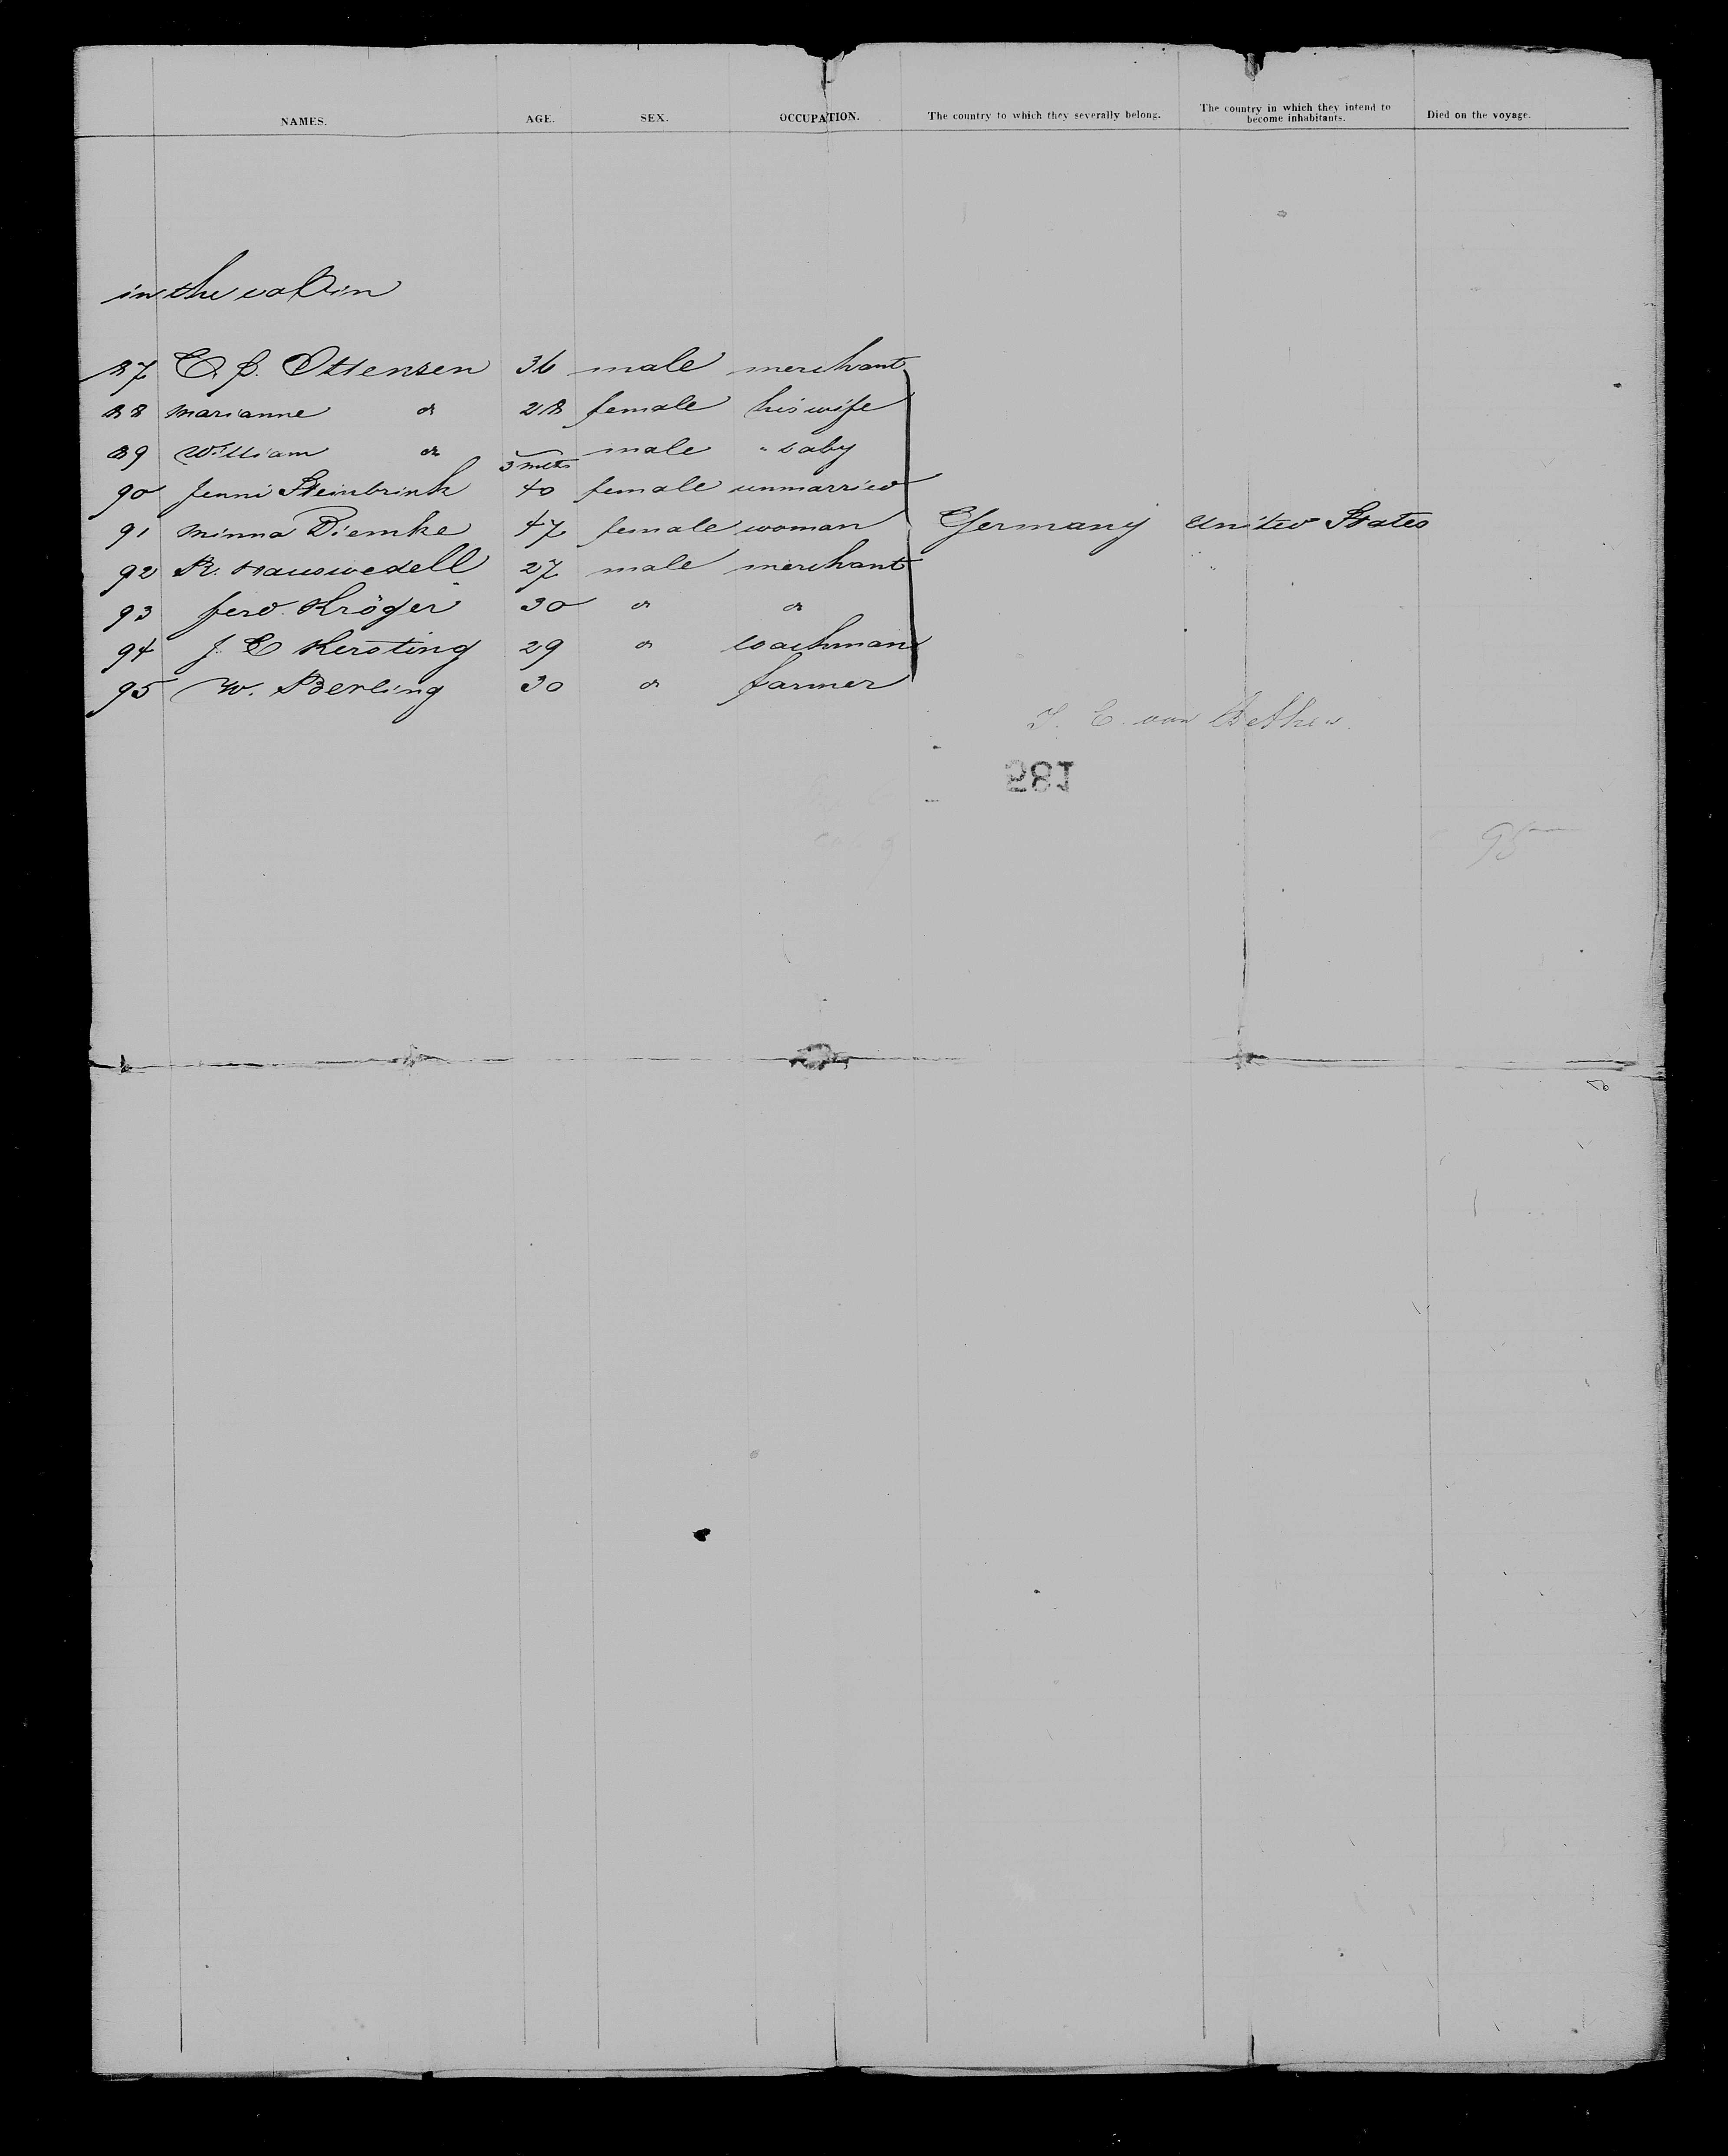 NAMES. AGE. SEX. OCCUPATION. The country to which they severally belong. The country in which they intend to become inhabitants. Died on the voyage.
in the cabin
87 Ottensen 36 male merchant
88 Marianne do 28 female his wife
89 William do 3 mths male " baby
90 Jenni Steinbrink 40 female unmarried
91 Minna Diemke 47 female woman Germany United States
92 R. Hauswedell 27 male merchant
93 Ferd. Kröger 30 do do
94 J. C Kersting 29 do coachman
95 W. Berling 30 do farmer
581
95